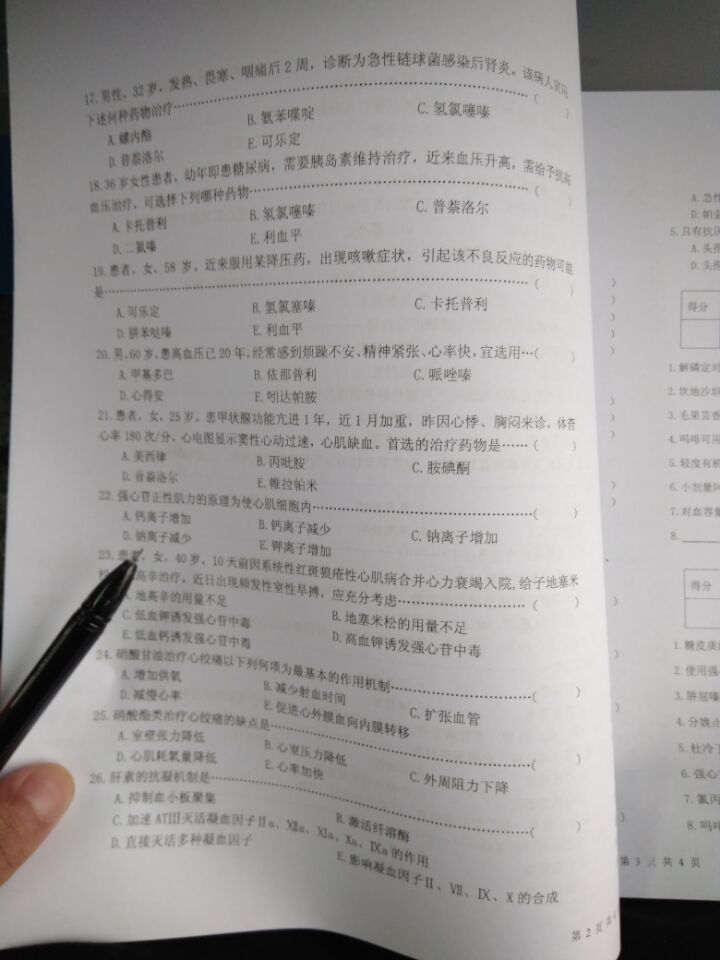 17.男性，32岁，发热、畏寒、咽痛后2周，诊断为急性链球菌感染后肾炎。该病人宜用
下述何种药物治疗……( )
A.螺内酯 B.氨苯喋啶 C.氢氯噻嗪
D.普萘洛尔 E.可乐定
18.36岁女性患者，幼年即患糖尿病，需要胰岛素维持治疗，近来血压升高，需给予抗高
血压治疗，可选择下列哪种药物……( )
A.卡托普利 B.氢氯噻嗪 C.普萘洛尔
D.二氮嗪 E.利血平
19.患者、女，58岁。近来服用某降压药，出现咳嗽症状，引起该不良反应的药物可能
是……( )
A.可乐定 B.氢氯塞嗪 C.卡托普利
D.肼苯哒嗪 E.利血平
20.男，60岁，患高血压已20年，经常感到烦躁不安、精神紧张、心率快，宜选用…( )
A.甲基多巴 B.依那普利 C.哌唑嗪
D.心得安 E.吲达帕胺
21.患者，女，25岁。患甲状腺功能亢进1年，近1月加重，昨因心悸、胸闷来诊。体查
心率180次/分，心电图显示窦性心动过速，心肌缺血。首选的治疗药物是……( )
A.美西律 B.丙吡胺 C.胺碘酮
D.普萘洛尔 E.维拉帕米
22.强心苷正性肌力的原理为使心肌细胞内……( )
A.钙离子增加 B.钙离子减少 C.钠离子增加
D.钠离子减少 E.钾离子增加
23.患者，女，40岁。10天前因系统性红斑狼疮性心肌病合并心力衰竭入院，给予地塞米
高辛治疗。近日出现频发性室性早搏，应充分考虑……( )
地高辛的用量不足 B.地塞米松的用量不足
C.低血钾诱发强心苷中毒 D.高血钾诱发强心苷中毒
E.低血钙诱发强心苷中毒
24.硝酸甘油治疗心绞痛以下列何项为最基本的作用机制……( )
A.增加供氧 B.减少射血时间 C.扩张血管
D.减慢心率 E.促进心外膜血向内膜转移
25.硝酸酯类治疗心绞痛的缺点是……( )
A.室壁张力降低 B.心室压力降低 C.外周阻力下降
D.心肌耗氧量降低 E.心率加快
26.肝素的抗凝机制是……( )
A.抑制血小板聚集 B.激活纤溶酶
C.加速ATⅢ灭活凝血因子Ⅱa、Ⅻa、Ⅺa、Ⅹa、Ⅸa的作用
D.直接灭活多种凝血因子 E.影响凝血因子Ⅱ、Ⅶ、Ⅸ、Ⅹ的合成
第 2 页 共
A.急性
D.帕金
5.具有抗
A.头孢
D.头孢
得分
1.解磷定对
2.坎地沙坦
3.毛果芸香
4.吗啡可用
5.轻度有机
6.小剂量
7.对血容量
8.
得分
1.糖皮质
2.使用强
3.肼屈嗪
4.分娩止
5.杜冷丁
6.强心
7.氯丙
8.吗啡
第 3 页 共 4 页